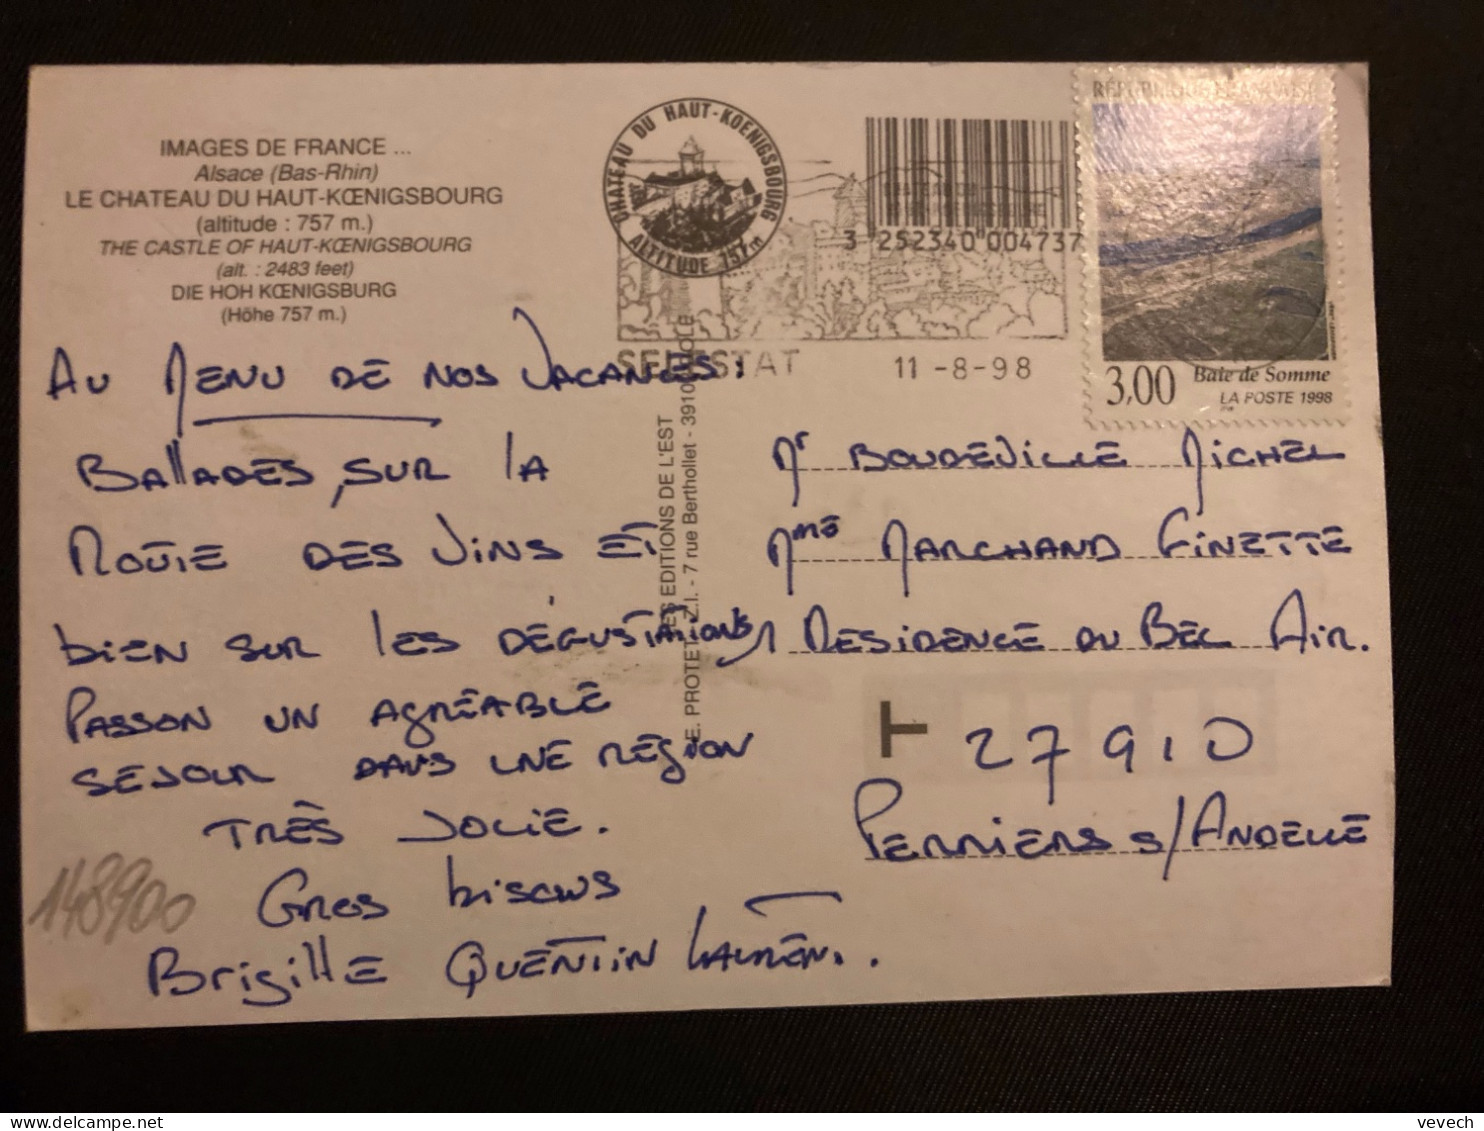 IMAGES DE FRANCE ...
Alsace (Bas-Rhin)
LE CHATEAU DU HAUT-KŒNIGSBOURG
(altitude : 757 m.)
THE CASTLE OF HAUT-KŒNIGSBOURG
(alt. : 2483 feet)
DIE HOH KŒNIGSBURG
(Höhe 757 m.)
CHATEAU DU HAUT-KOENIGSBOURG
ALTITUDE 757m
3 252340 004737
SELESTAT 11-8-98
RÉPUBLIQUE FRANÇAISE
3,00 Baie de Somme
LA POSTE 1998
AU MENU DE NOS VACANCES :
BALLADES, SUR LA
ROUTE DES VINS ET
BIEN SUR LES DÉGUSTATIONS,
PASSON UN AGRÉABLE
SEJOUR DANS UNE RÉGION
TRÈS JOLIE.
GROS BISOUS
BRIGITTE QUENTIN LAURENT.
148900
7 rue Berthollet - 39100 DOLE
Mr BOUDEVILLE MICHEL
Mme MARCHAND GINETTE
RESIDENCE DU BEL AIR.
T 27910
PERRIERS S/ANDELLE
vevech